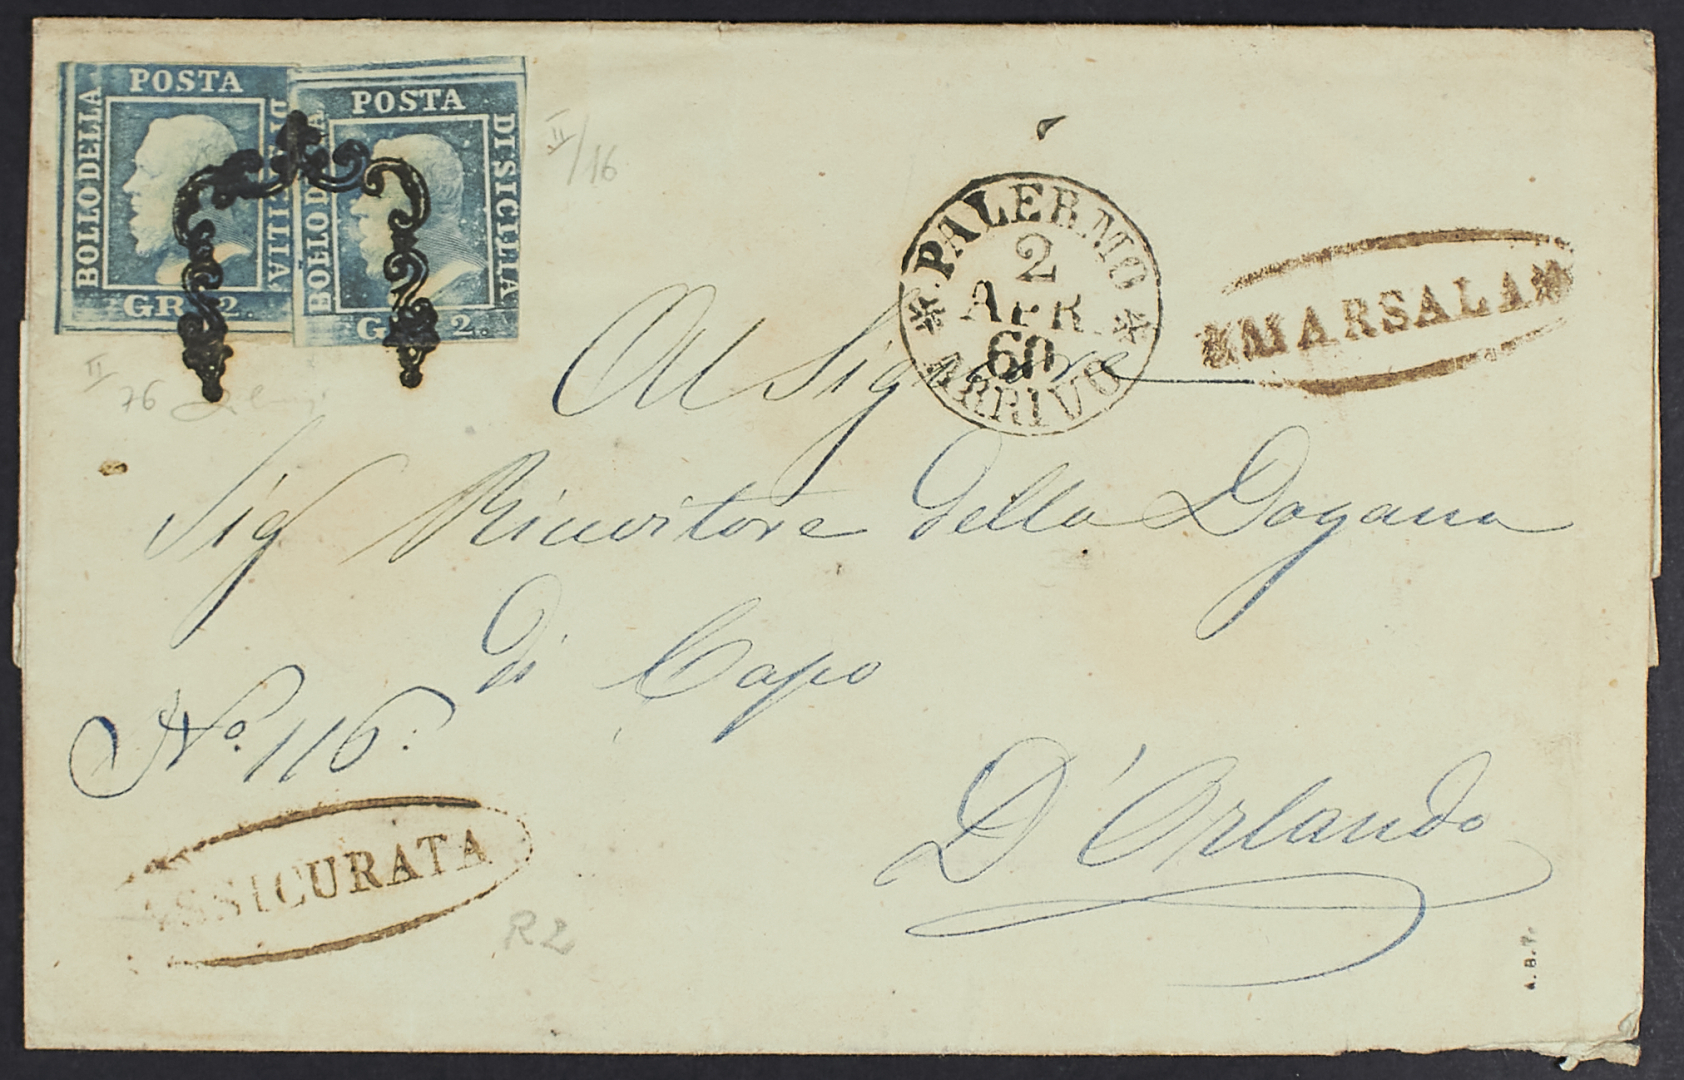 POSTA
BOLLO DELLA
DI SICILIA
GR. 2.
POSTA
BOLLO DELLA
DI SICILIA
GR. 2.
II/16
II
76
PALERMO
2
APR.
60
ARRIVO
MARSALA
Al Signore
Sig Ricevitore della Dogana
di Capo
D'Orlando
No. 116.
ASSICURATA
R2
A.B.7.